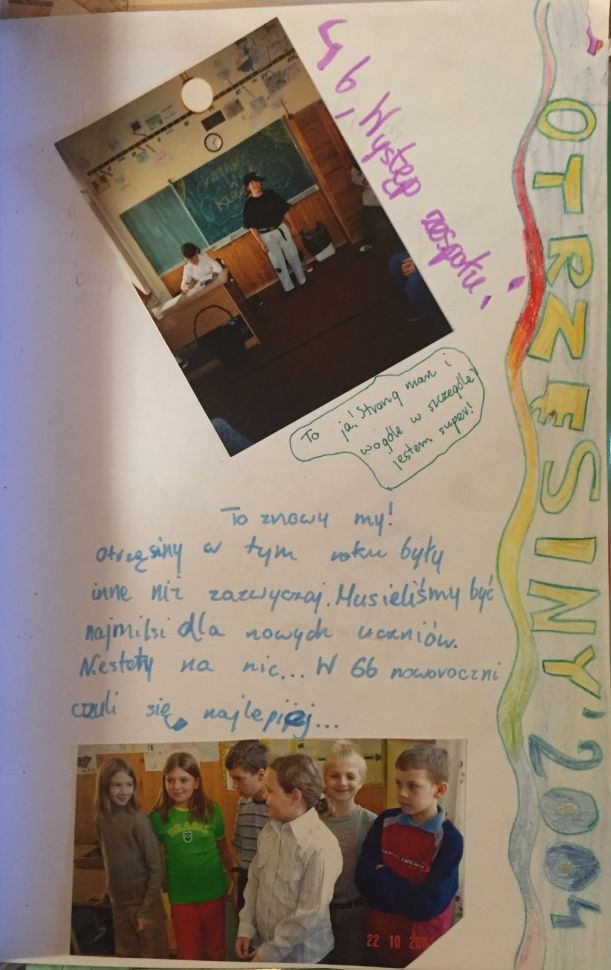 OTRZĘSINY'2004
Występ zespołu
To ja! Strong man i
wogóle w szczególe
jestem super!
To znowy my!
otrzęsiny w tym roku były
inne niż zazwyczaj. Musieliśmy być
najmilsi dla nowych uczniów.
Niestety na nic... W 6b noworoczni
czuli się najlepiej...
22 10